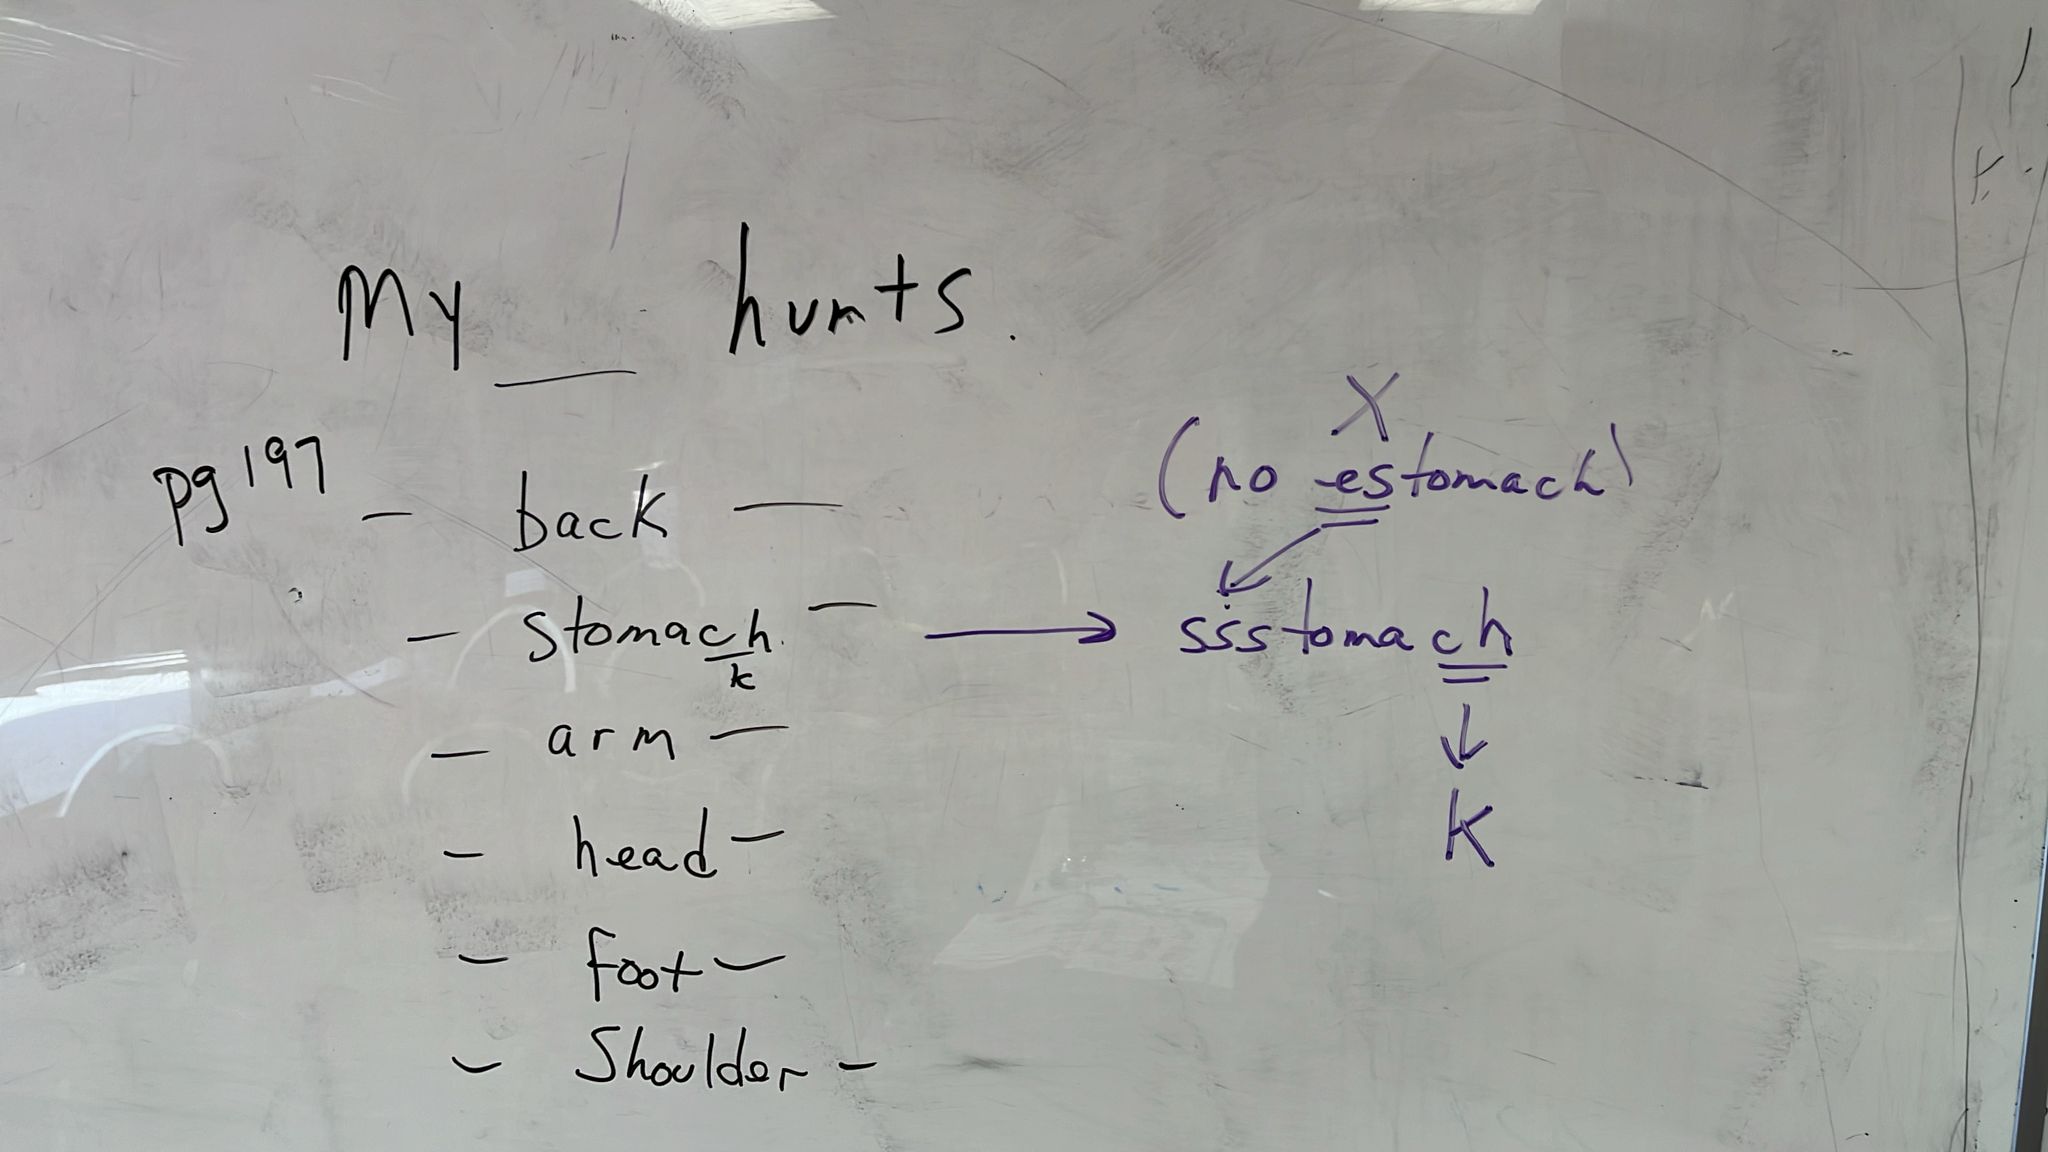 My ___ hurts.
pg 197
- back -
- stomach -
k
- arm -
- head -
- foot -
- Shoulder -
X
(no estomach)
ssstomach
K